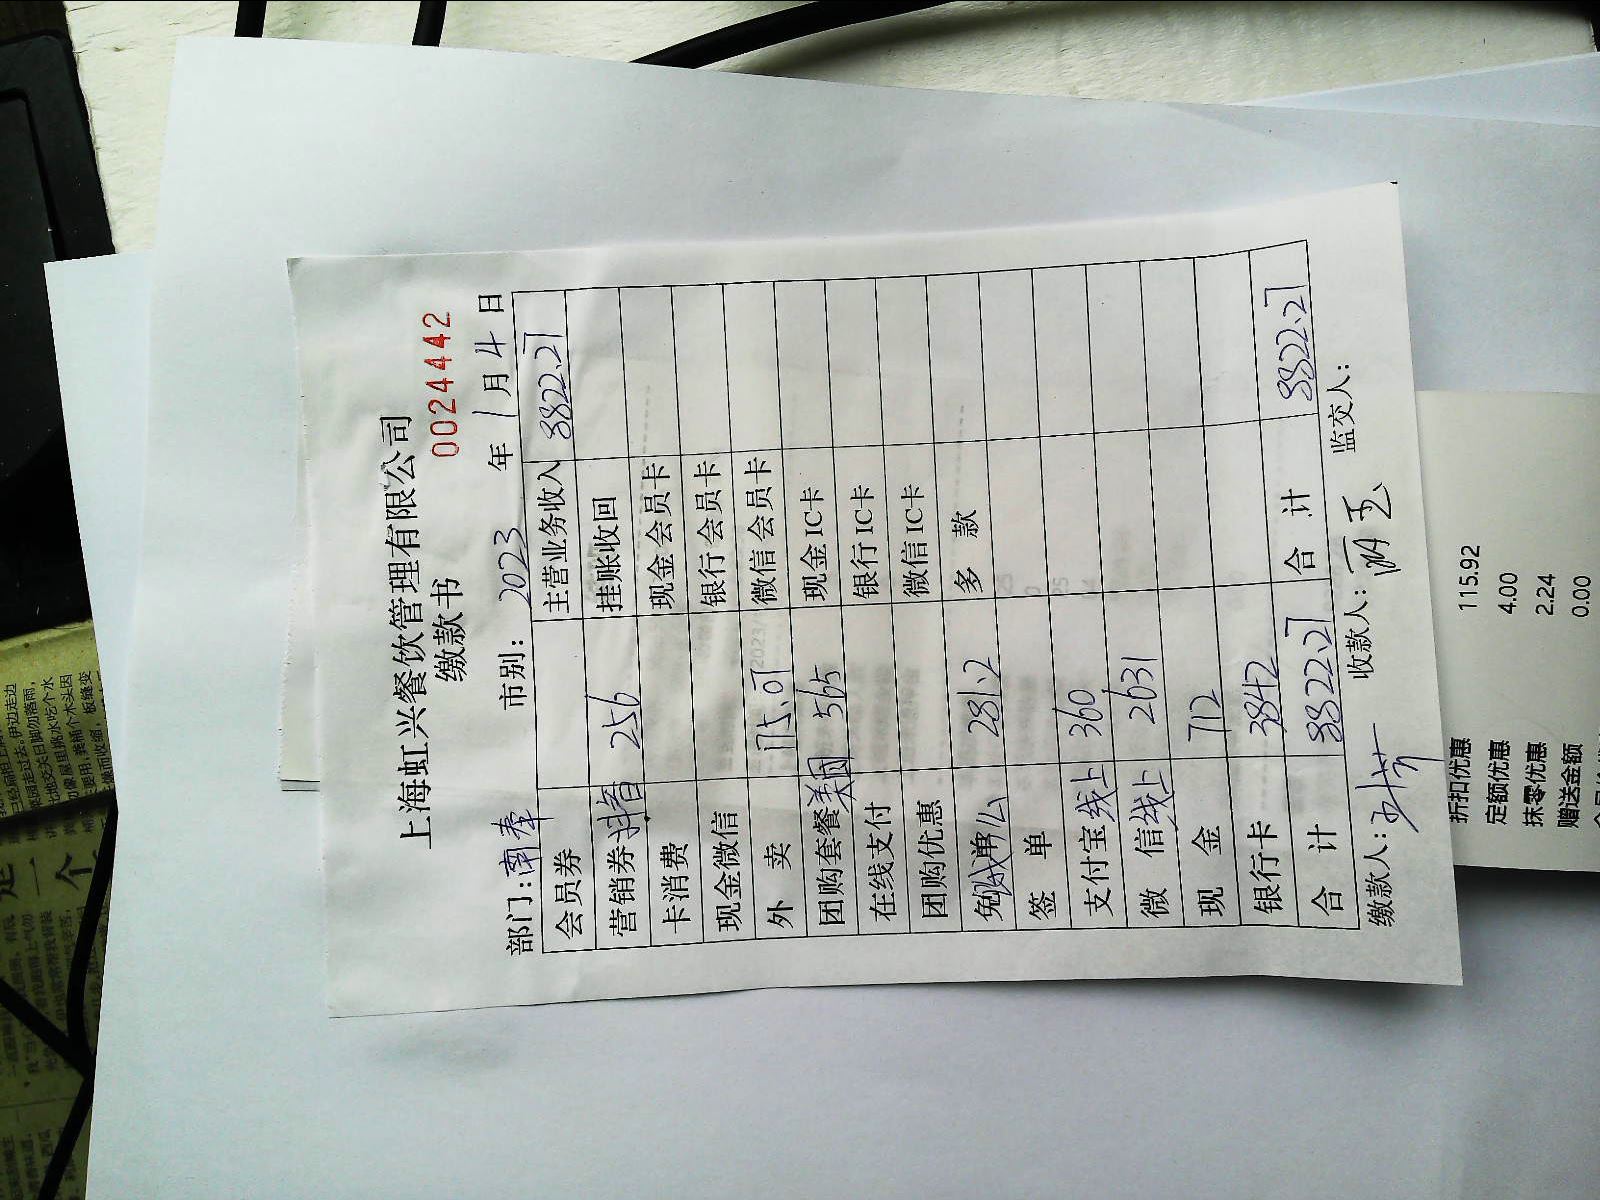 上海虹兴餐饮管理有限公司
缴款书
0024442
部门:南奉 市别: 2023 年 1 月 4 日
会员券 主营业务收入 8822.27
营销券抖音 256 挂账收回
卡消费 现金会员卡
现金微信 银行会员卡
外 卖 175.07 微信会员卡
团购套餐美团 565 现金IC卡
在线支付 银行IC卡
团购优惠 微信IC卡
免单 281.2 多 款
签 单
支付宝线上 360
微 信线上 2631
现 金 712
银行卡 3842
合 计 8822.27 合 计 8822.27
缴款人: 收款人: 监交人:
折扣优惠 115.92
定额优惠 4.00
抹零优惠 2.24
赠送金额 0.00